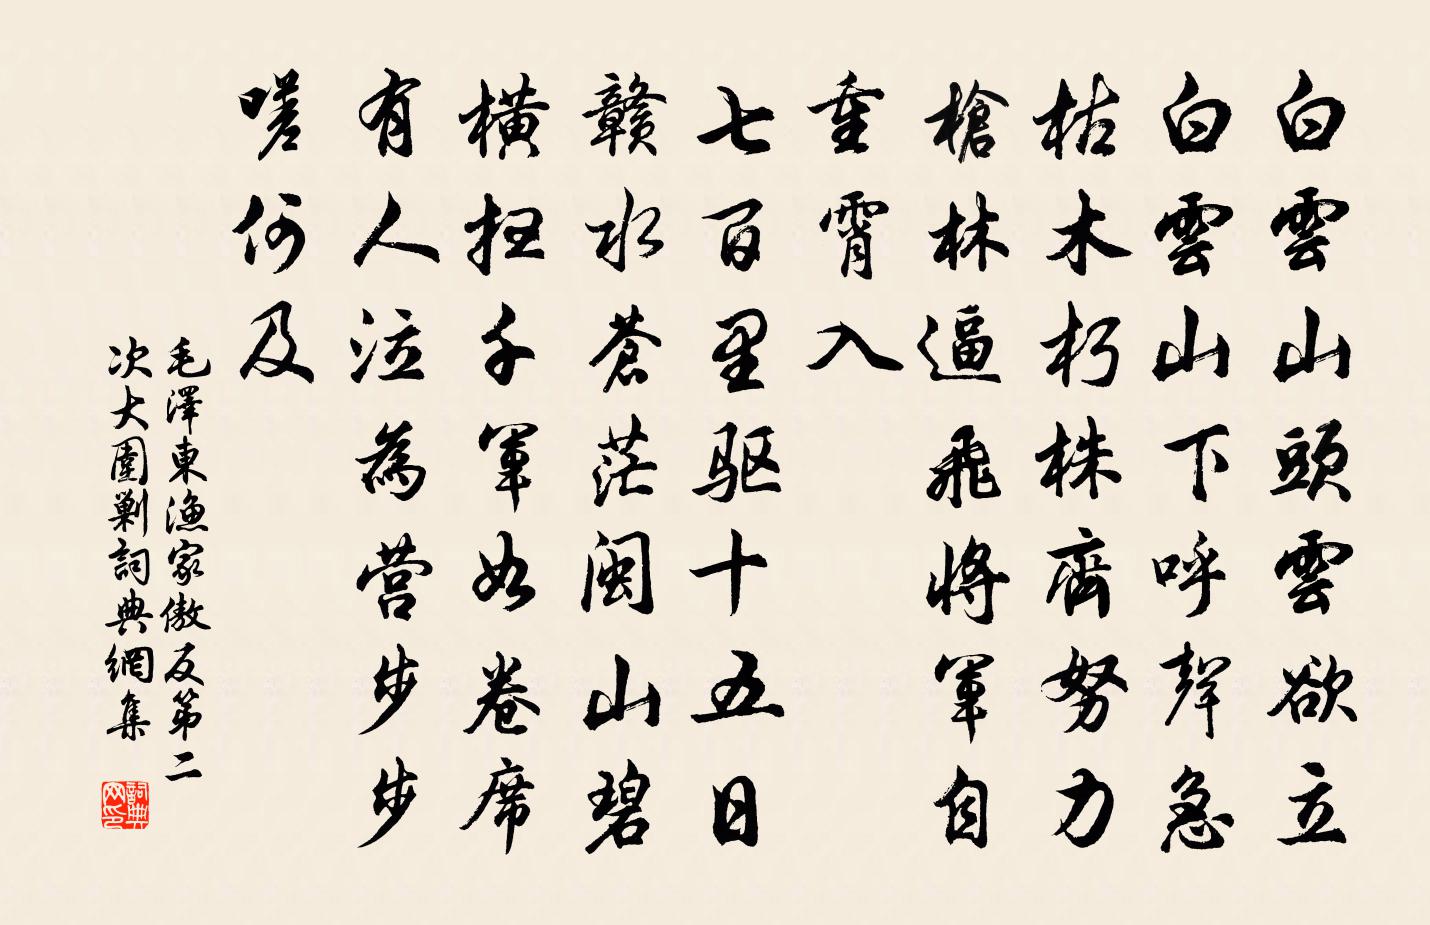 白雲山頭雲欲立
白雲山下呼聲急
枯木朽株齊努力
槍林逼飛將軍自
重霄入
七百里驱十五日
赣水蒼茫闽山碧
橫扫千軍如卷席
有人泣為营步步
嗟何及
毛澤東漁家傲反第二
次大圍剿詞典網集
詞典网印